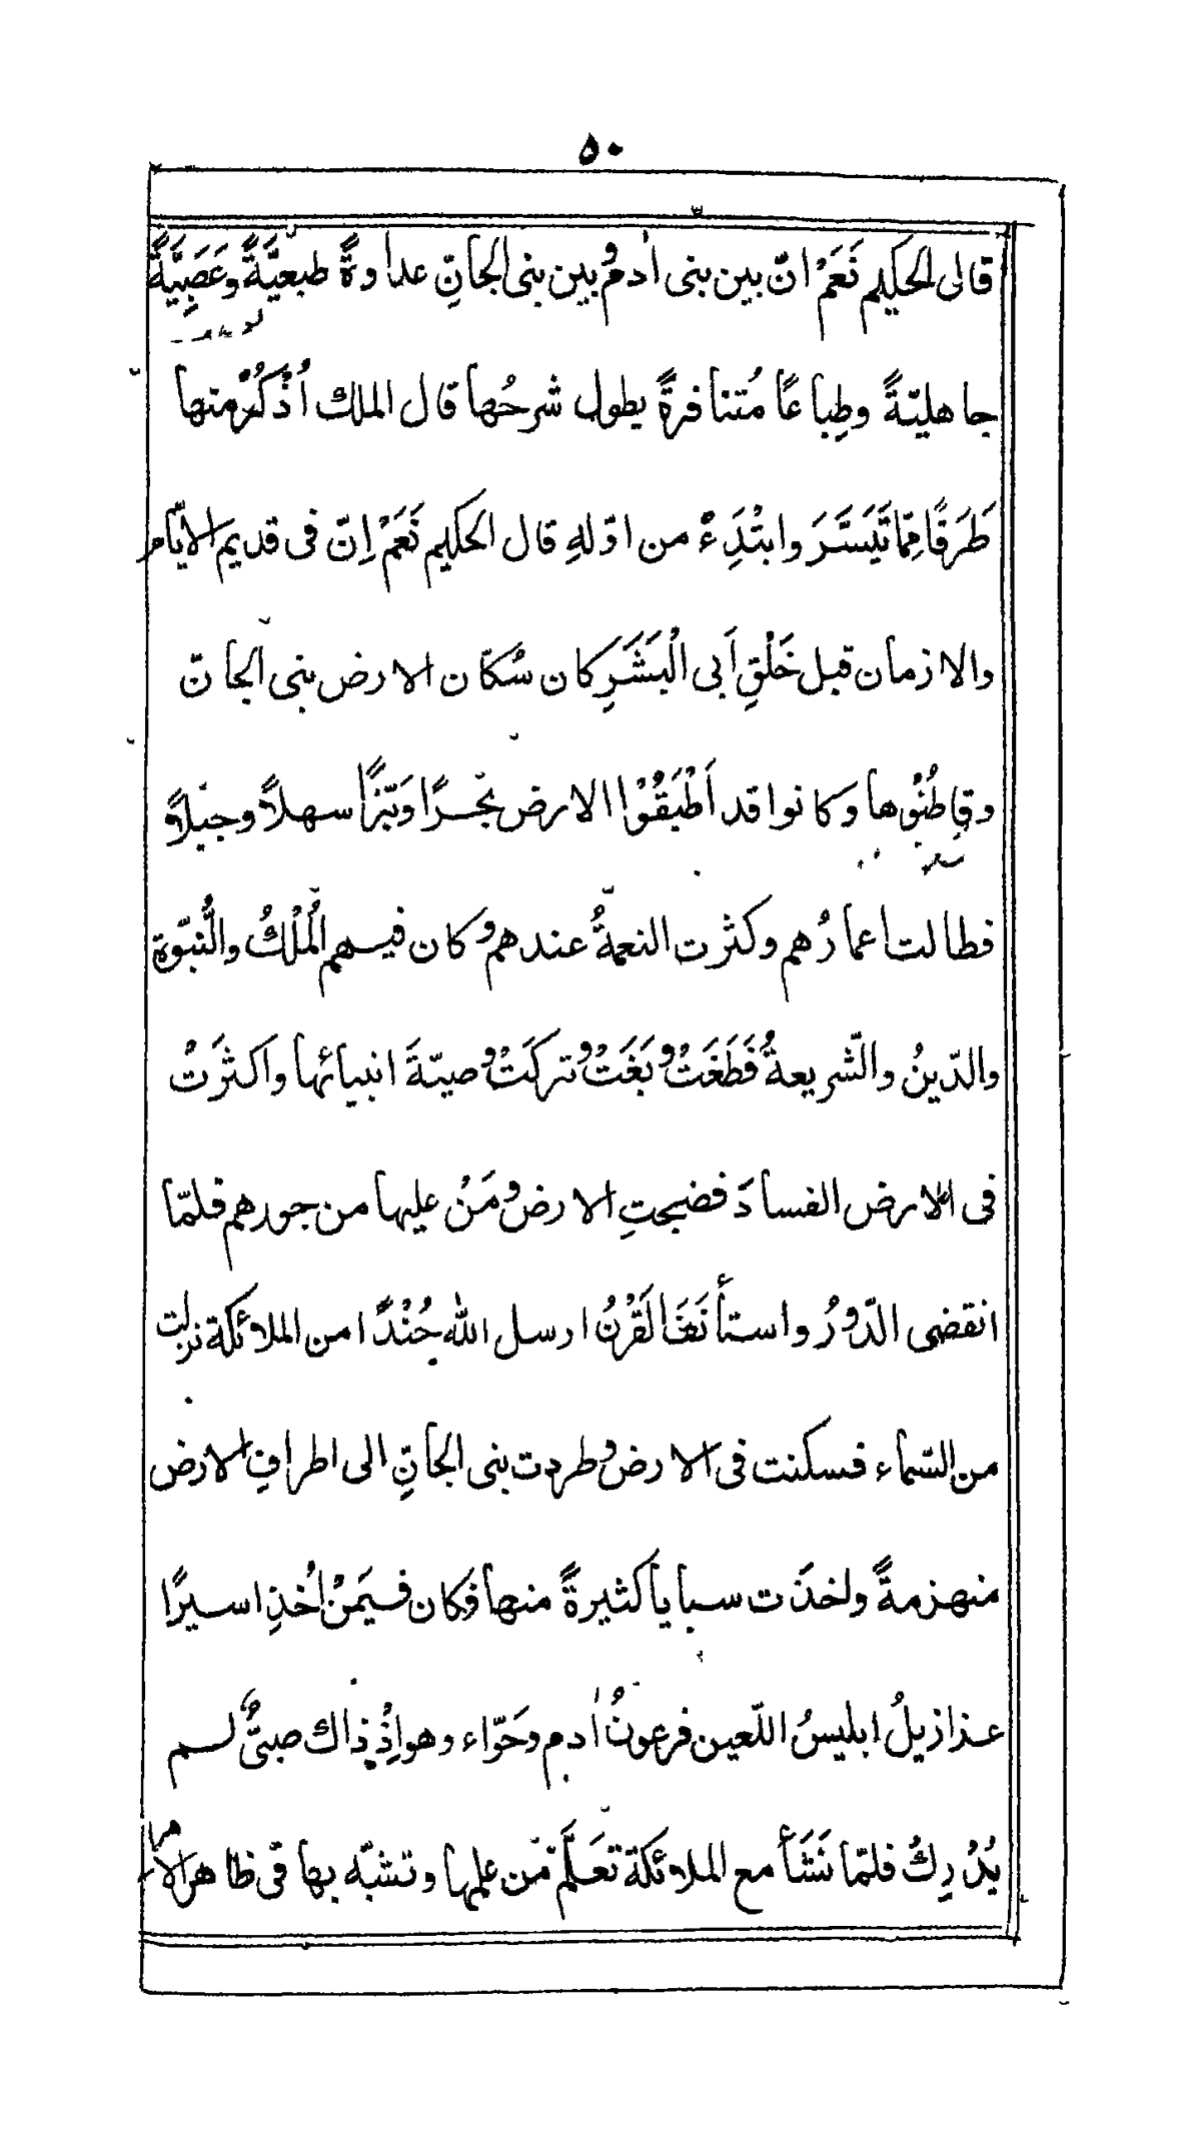 ٥٠
قال الحكيم نَعَمْ انّ بين بنى اٰدم وبين بنى الجانِّ عداوةً طبعيَّةً وعَصَبِيَّةً
جاهليّةً وطِباعًا مُتنافرةً يطول شرحُها قال الملك اُذْكُرْ منها
طَرَفًا مِمّا تَيَسَّرَ وابتْدَِءْ من اوّلهِ قال الحكيم نَعَمْ اِنّ فى قديم الايّام
والازمان قبل خَلْقِ اَبى الْبَشَرِ كان سُكّان الارض بنى الجانّ
وقاطُنُوْها وكانوا قد اَطْبَقُوْا الارض بَحْرًا وَبَرًّا سهلاً وجبلاً
فطالت اعمارُهم وكثرت النعمةُ عندهم وكان فيهم الْمُلْكُ والنُّبوّة
والدّينُ والشّريعةُ فَطَغَتْ وبَغَتْ وتركَتْ وصيّةَ انبيائها واكثرَتْ
فى الارض الفسادَ فضجتِ الارض ومَنْ عليها من جورهم فلمّا
انقضى الدّورُ واستأنَفَ القَرْنُ ارسل الله جُنْدًا من الملائكة نزلت
من السّماء فسكنت فى الارض وطردت بنى الجانِّ الى اطرافِ الارض
منهزمةً ولخذَت سبايا كثيرةً منها فكان فيمَنْ اُخذِ اسيرًا
عزازيلُ ابليسُ اللّعين فرعونُ اٰدم وحَوّاء وهو اِذْ ذاك صبىٌّ لم
يُدْرِكْ فلمّا نَشَأَ مع الملائكة تَعَلَّم من علمها وتشبّه بها فى ظاهر الامر